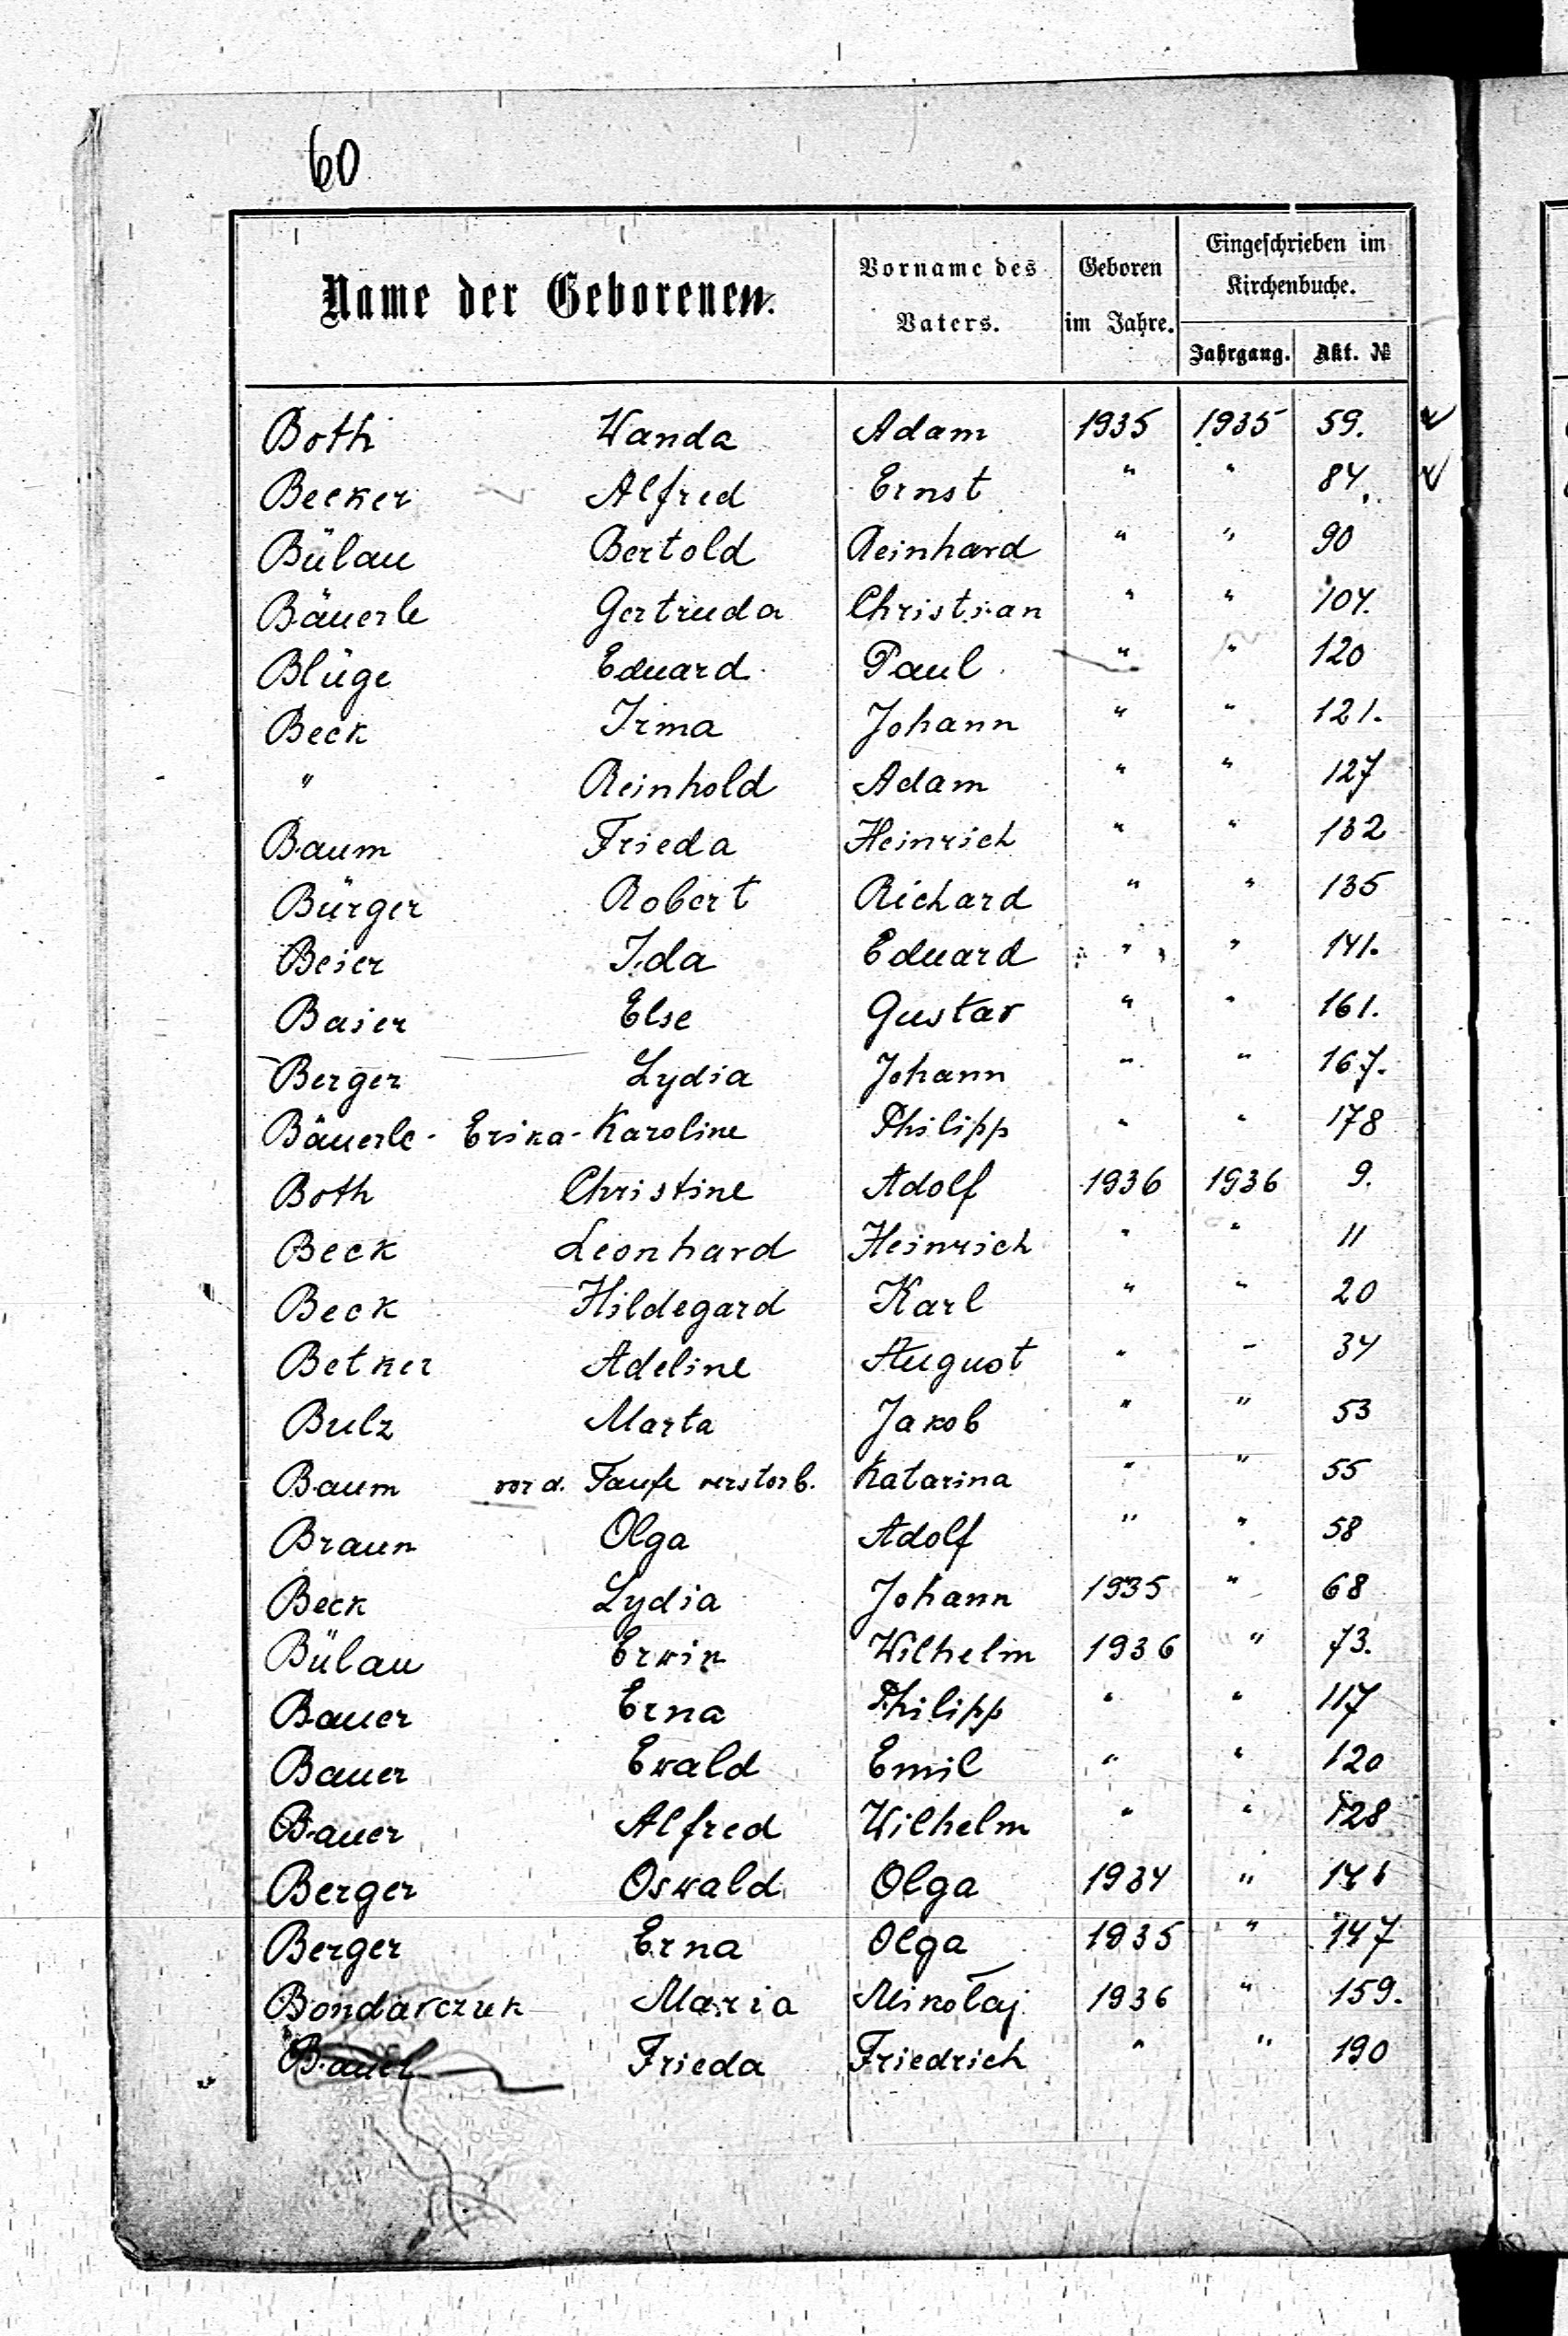 60
Name der Geborenen. Vorname des Vaters. Geboren im Jahre. Eingeschrieben im Kirchenbuche.
Jahrgang. Akt. №
Both Wanda Adam 1935 1935 59.
Becker Alfred Ernst " " 84.
Bülau Bertold Reinhard " " 90
Bäuerle Gertruda Christian " " 104.
Blüge Eduard Paul " " 120
Beck Irma Johann " " 121.
" Reinhold Adam " " 127
Baum Frieda Heinrich " " 132
Bürger Robert Richard " " 135
Beier Ida Eduard " " 141.
Baier Else Gustav " " 161.
Berger Lydia Johann " " 167.
Bäuerle - Erika - Karoline Philipp " " 178
Both Christine Adolf 1936 1936 9.
Beck Leonhard Heinrich " " 11
Beck Hildegard Karl " " 20
Betker Adeline August " " 34
Bulz Marta Jakob " " 53
Baum vor d. Taufe verstorb. Katarina " " 55
Braun Olga Adolf " " 58
Beck Lydia Johann 1935 " 68
Bülau Erwin Wilhelm 1936 " 73.
Bauer Erna Philipp " " 117
Bauer Ewald Emil " " 120
Bauer Alfred Wilhelm " " 128
Berger Oswald Olga 1934 "
Berger Erna Olga 1935 " 147
Bondarczuk Maria Mikołaj 1936 " 159.
Bauer Frieda Friedrich " " 190